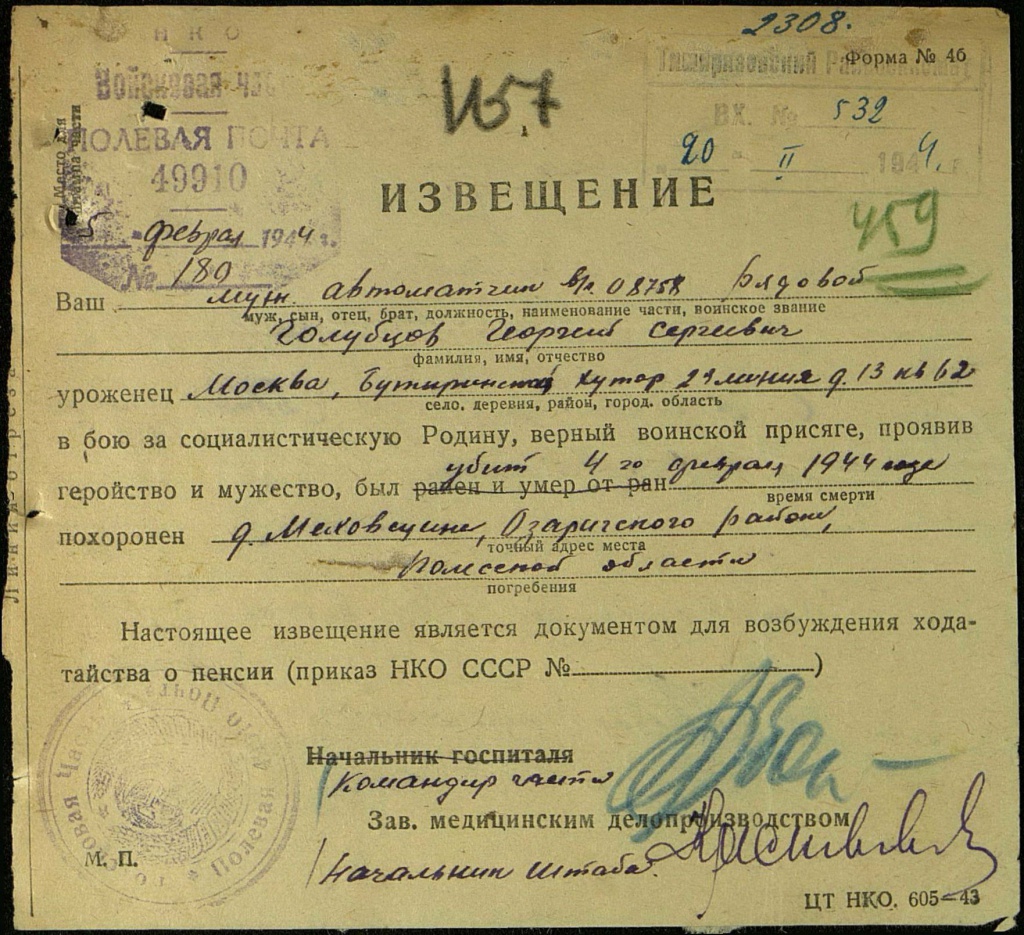 2308.
Форма № 46
НКО
Войсковая
ПОЛЕВАЯ ПОЧТА
49910
феврал 1944 г.
№ 180
Место для
части
1157
Тимирязевский
ВХ. № 532
20 II 1944 г.
459
ИЗВЕЩЕНИЕ
Ваш муж автоматчик в/ч 08758 Рядовой
муж, сын, отец, брат, должность, наименование части, воинское звание
Голубцов Георгий Сергеевич
фамилия, имя, отчество
уроженец Москва, Бутырский хутор 2я линия д. 13 кв 62
село, деревня, район, город, область
в бою за социалистическую Родину, верный воинской присяге, проявив
убит 4 го февраля 1944 года
геройство и мужество, был ранен и умер от ран
время смерти
похоронен д. Меховщина, Озаричского района,
точный адрес места
Полесской области
погребения
Настоящее извещение является документом для возбуждения хода-
тайства о пенсии (приказ НКО СССР № )
Начальник госпиталя
Командир части
Зав. медицинским делопроизводством
Начальник штаба
М. П.
Полевая
ЦТ НКО. 605—43
Линия отреза